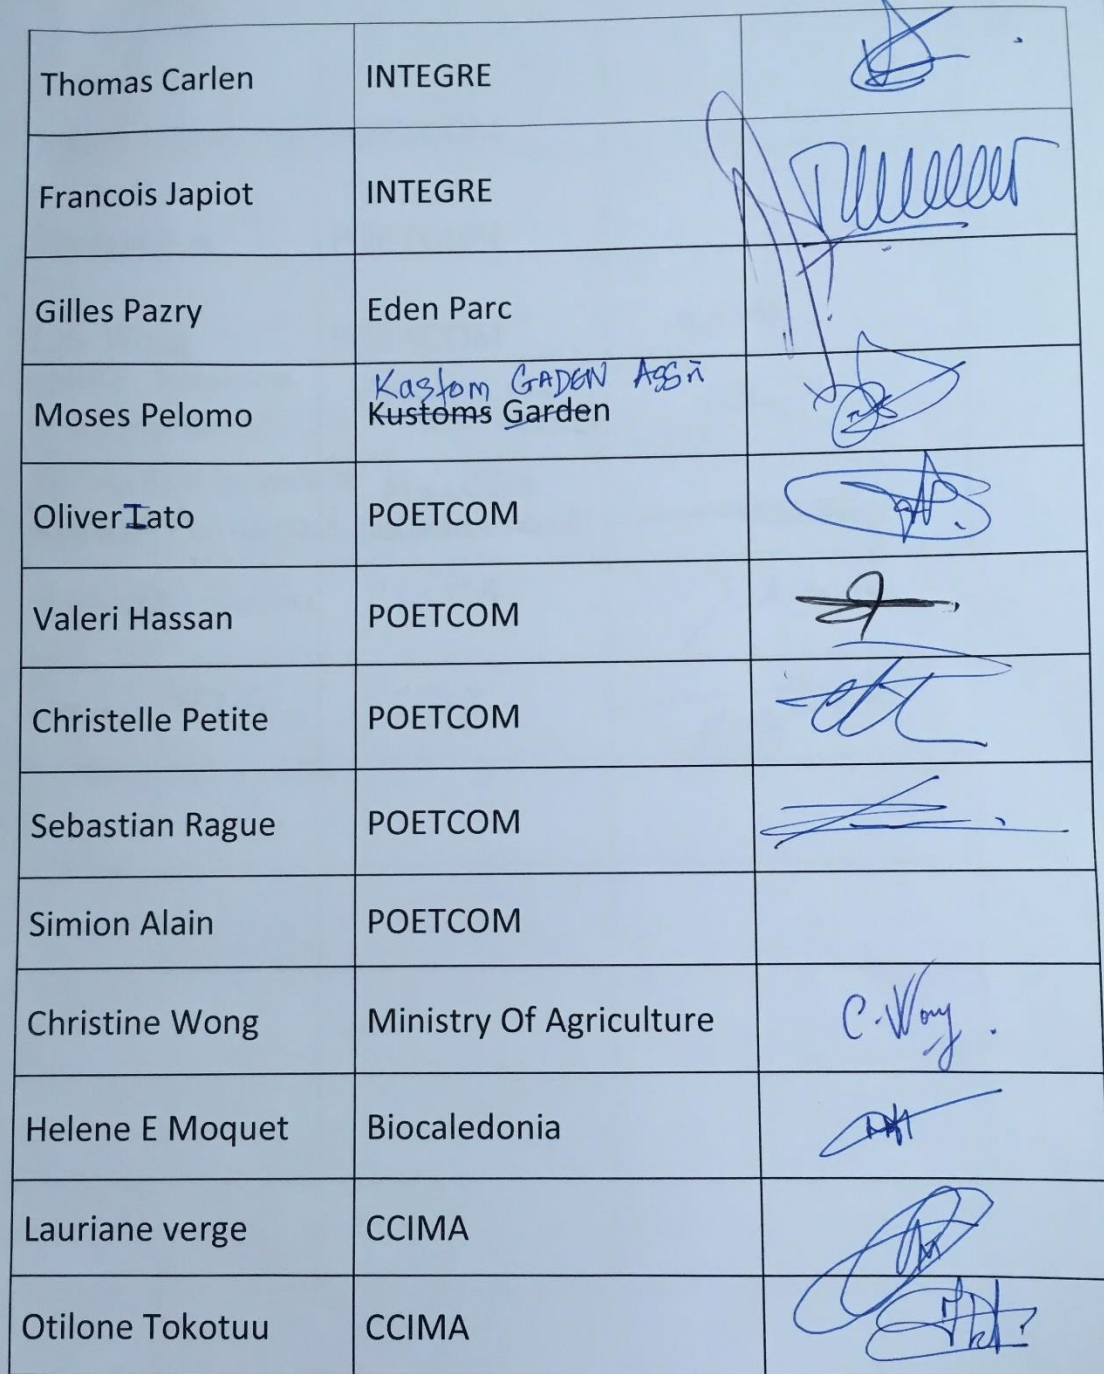 Thomas Carlen INTEGRE
Francois Japiot INTEGRE
Gilles Pazry Eden Parc
Kastom GADEN Assn
Moses Pelomo Kustoms Garden
Oliver Iato POETCOM
Valeri Hassan POETCOM
Christelle Petite POETCOM
Sebastian Rague POETCOM
Simion Alain POETCOM
Christine Wong Ministry Of Agriculture C. Wong
Helene E Moquet Biocaledonia
Lauriane verge CCIMA
Otilone Tokotuu CCIMA